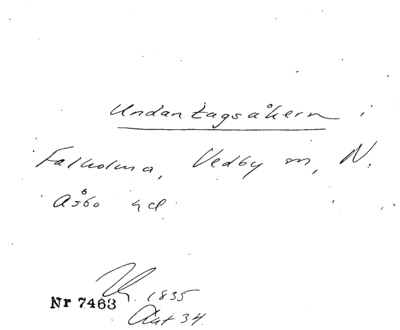 Undantagsåkern i
Falholma, Vedby sn, N.
Åsbo hd
Nr 7463. 1835
Akt 34.